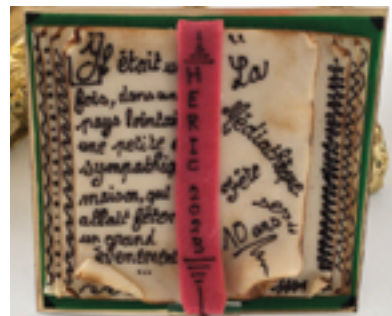 Il était une
fois, dans un
pays lointain
une petite
sympathique
maison, qui
allait fêter
un grand
évènement
...
HERIC 2023
"La
Médiathèque
fête
ses
10 ans"